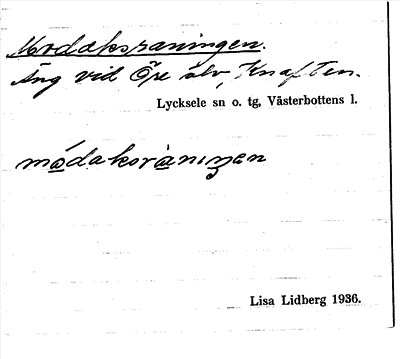 Mordaksraningen.
Äng vid Öre älv, Knaften.
Lycksele sn o. tg, Västerbottens l.
módaksràniŋen
Lisa Lidberg 1936.